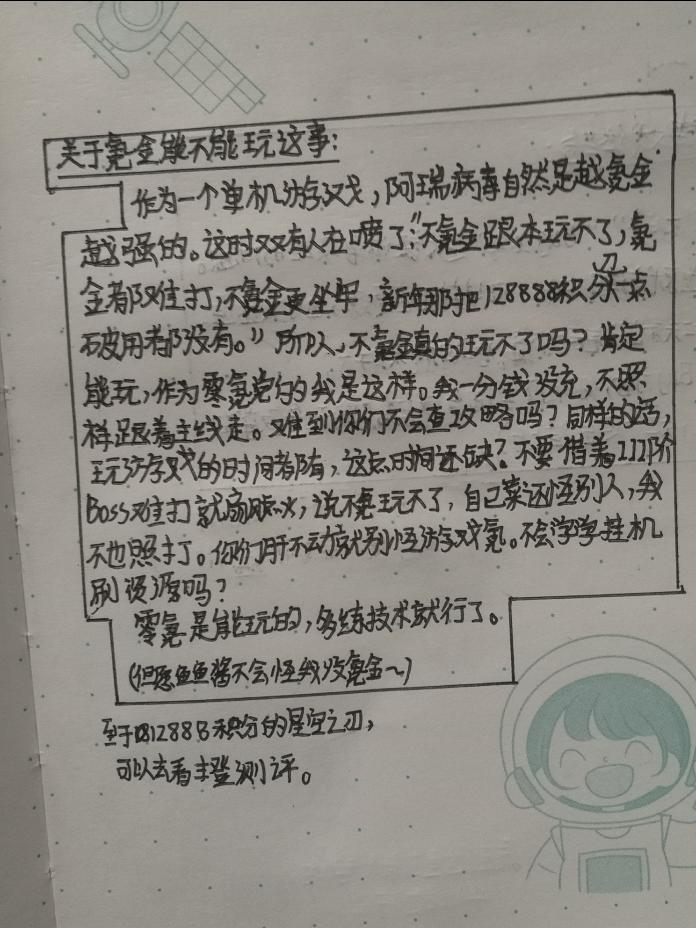 关于氪金能不能玩这事:
作为一个单机游戏,阿瑞病毒自然是越氪金
越强的。这时又又有人在喷了:"不氪金跟本玩不了,氪
金都难打,不氪金更坐牢,新年那把128888积分刃一点
破用都没有。"所以,不氪金真的玩不了吗?肯定
能玩,作为零氪党的我是这样。我一分钱没充,不照
样跟着主线走。难到你们不会查攻略吗?同样的话,
玩游戏的时间都有,这点时间还缺?不要借着III阶
Boss难打就扇风点火,说不氪玩不了,自己菜还怪别人,我
不也照打。你们肝不动就别怪游戏氪。不会学学挂机
刷资源吗?
零氪是能玩的,多练技术就行了。
(但愿鱼鱼酱不会怪我没氪金~)
至于积分的星空之刃,
可以去看主登测评。